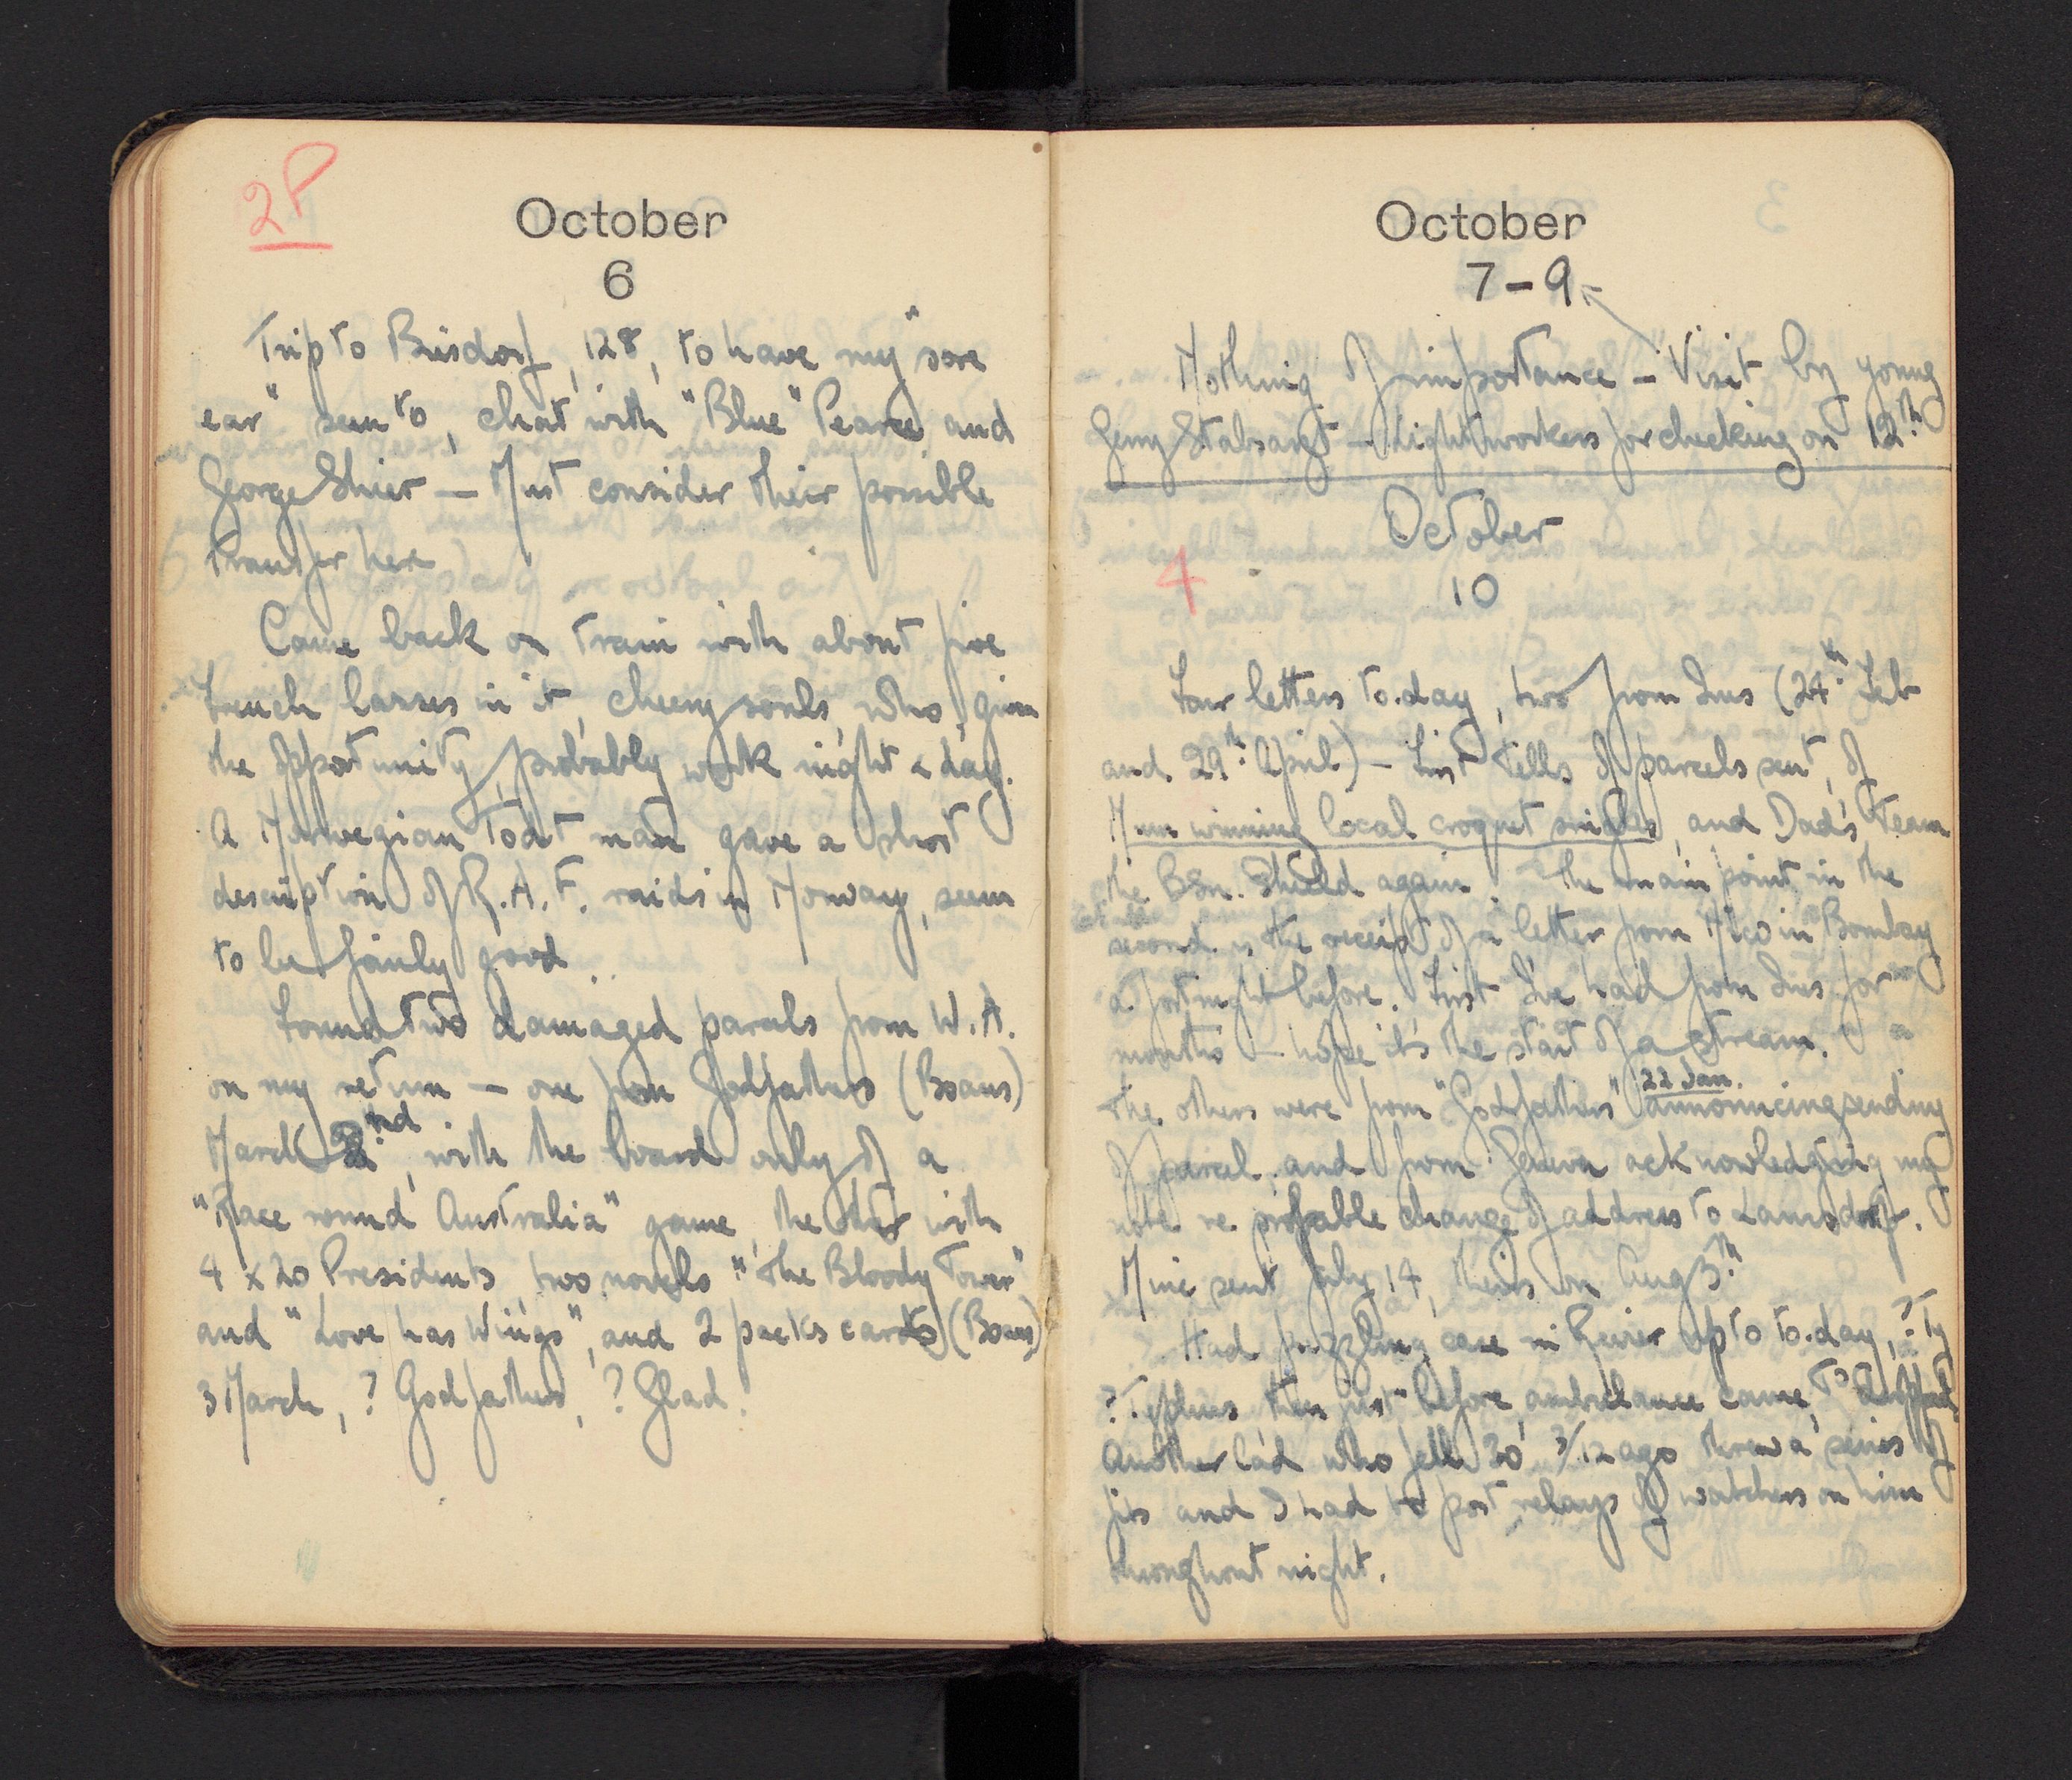 2P
October
6
Trip to 128, to have my "sore
ear" seen to, chat with "Blue" Pearce and
George Shier — Must consider their possible
transfer here
Came back on train with about five
French lasses in it, cheery souls, who, given
the opportunity, probably work night & day.
A Norwegian Todt man gave a short
description of R.A.F. raids in Norway, seem
to be fairly good.
Found two damaged parcels from W.A.
on my return — one from Godfathers (Boans)
March 2nd, with the board only of a
"Race round Australia" game, the other with
4 x 20 Presidents, two novels "The Bloody Tower"
and "Love has Wings", and 2 packs cards (Boans)
3 March, ? Godfathers, ? Glad.
October
7 - 9
Nothing of importance — Visit by young
Gerry Stabsarzt — Light workers for checking on 12th
October
4
10
Four letters to-day, two from (24th Feb
and 29th April) — First tells of parcels sent, of
Mum winning local croquet singles, and Dad's team
the Shield again. The main point in the
second is the receipt of a letter from in Bombay
a fortnight before. First I've had from for
months — hope it's the start of a stream.
22 Jan.
The others were from "Godfathers" announcing sending
of parcel, and from Geneva acknowledging my
note re probable change of address to Lamsdorf.
Mine sent July 14, theirs on Aug 3rd
Had puzzling case in Revier up to to-day, ? Ty
? Typhus, then just before ambulance came,
Another lad who fell 20' 3/12 ago threw a series of
fits and I had to post relays of watchers on him
throughout night.